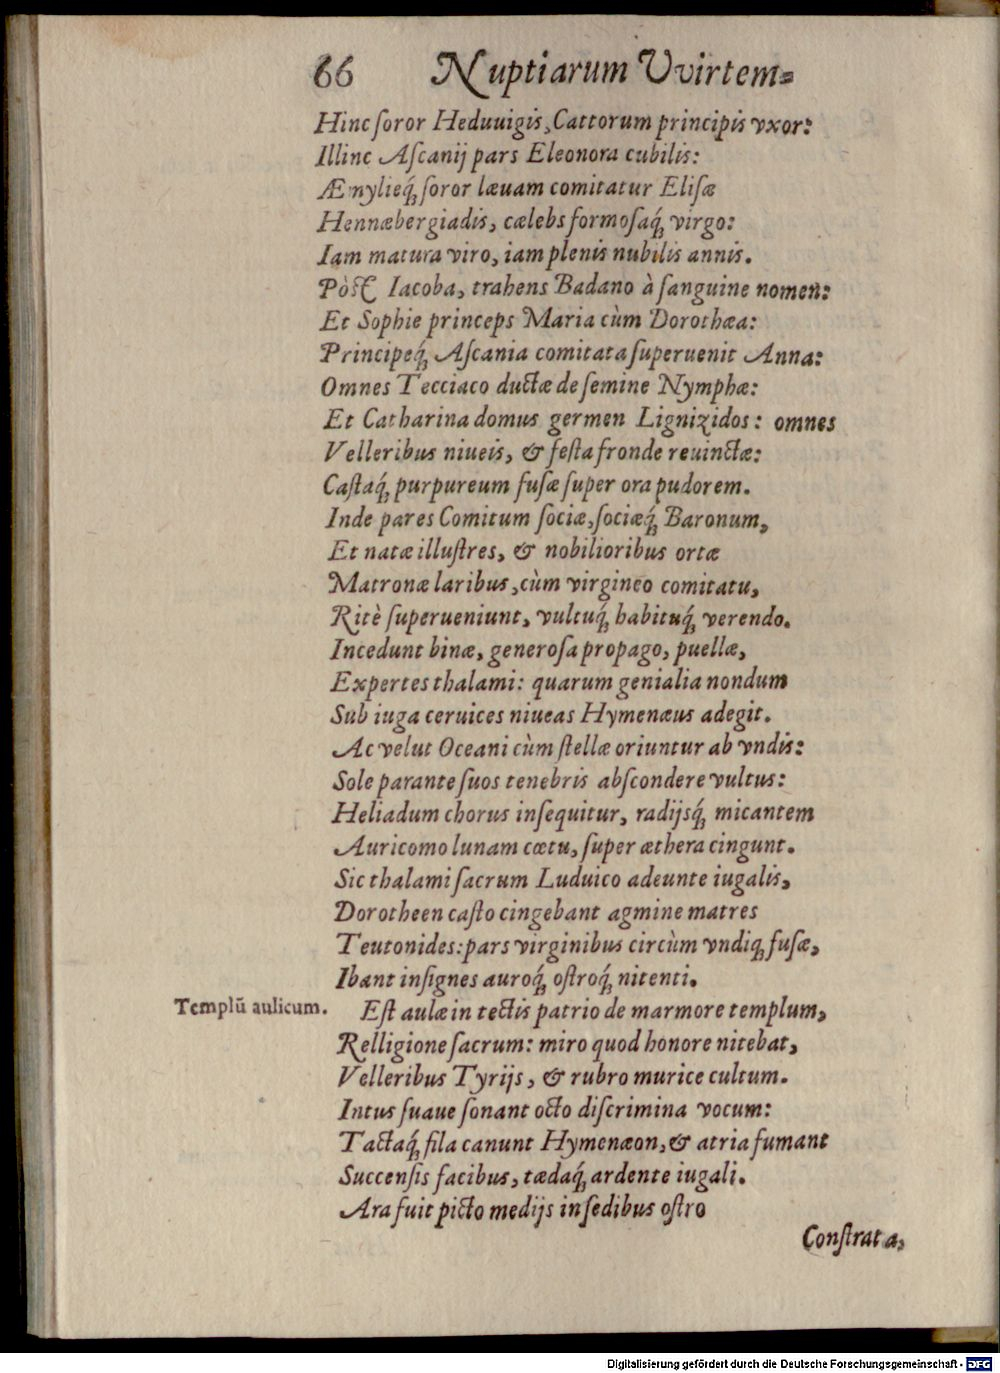 66 Nuptiarum Vvirtem⸗
Hinc ſoror Heduuigis, Cattorum principis vxor:
Illinc Aſcanij pars Eleonora cubilis:
Æmylieq́; ſoror læuam comitatur Eliſæ
Hennæbergiadis, cælebs formoſaq́; virgo:
Iam matura viro, iam plenis nubilis annis.
Pòſt Iacoba, trahens Badano à ſanguine nomen:
Et Sophie princeps Maria cùm Dorothæa:
Principeq́; Aſcania comitata ſuperuenit Anna:
Omnes Tecciaco ductæ de ſemine Nymphæ:
Et Catharina domus germen Lignizidos: omnes
Velleribus niueis, & feſta fronde reuinctæ:
Caſtaq́; purpureum fuſæ ſuper ora pudorem.
Inde pares Comitum ſociæ, ſociæq́; Baronum,
Et natæ illuſtres, & nobilioribus ortæ
Matronæ laribus, cùm virgineo comitatu,
Ritè ſuperueniunt, vultuq́; habituq́; verendo.
Incedunt binæ, generoſa propago, puellæ,
Expertes thalami: quarum genialia nondum
Sub iuga ceruices niueas Hymenæus adegit.
Ac velut Oceani cùm ſtellæ oriuntur ab vndis:
Sole parante ſuos tenebris abſcondere vultus:
Heliadum chorus inſequitur, radijsq́; micantem
Auricomo lunam cœtu, ſuper æthera cingunt.
Sic thalami ſacrum Luduico adeunte iugalis,
Dorotheen caſto cingebant agmine matres
Teutonides: pars virginibus circùm vndiq; fuſæ,
Ibant inſignes auroq́; oſtroq́; nitenti.
Templū aulicum. Eſt aulæ in tectis patrio de marmore templum,
Relligione ſacrum: miro quod honore nitebat,
Velleribus Tyrijs, & rubro murice cultum.
Intus ſuaue ſonant octo diſcrimina vocum:
Tactaq́; fila canunt Hymenæon, & atria fumant
Succenſis facibus, tædaq́; ardente iugali.
Ara fuit picto medijs in ſedibus oſtro
Conſtrata,
Digitalisierung gefördert durch die Deutsche Forschungsgemeinschaft - DFG